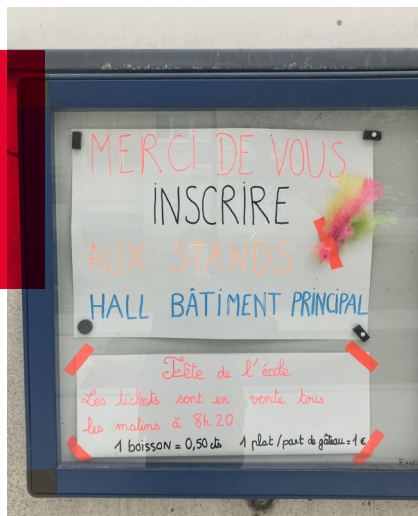 MERCI DE VOUS
INSCRIRE
AUX STANDS
HALL BÂTIMENT PRINCIPAL
Fête de l'école
Les tickets sont en vente tous
les matins à 8h20.
1 boisson = 0,50 cts 1 plat/part de gâteau = 1 €